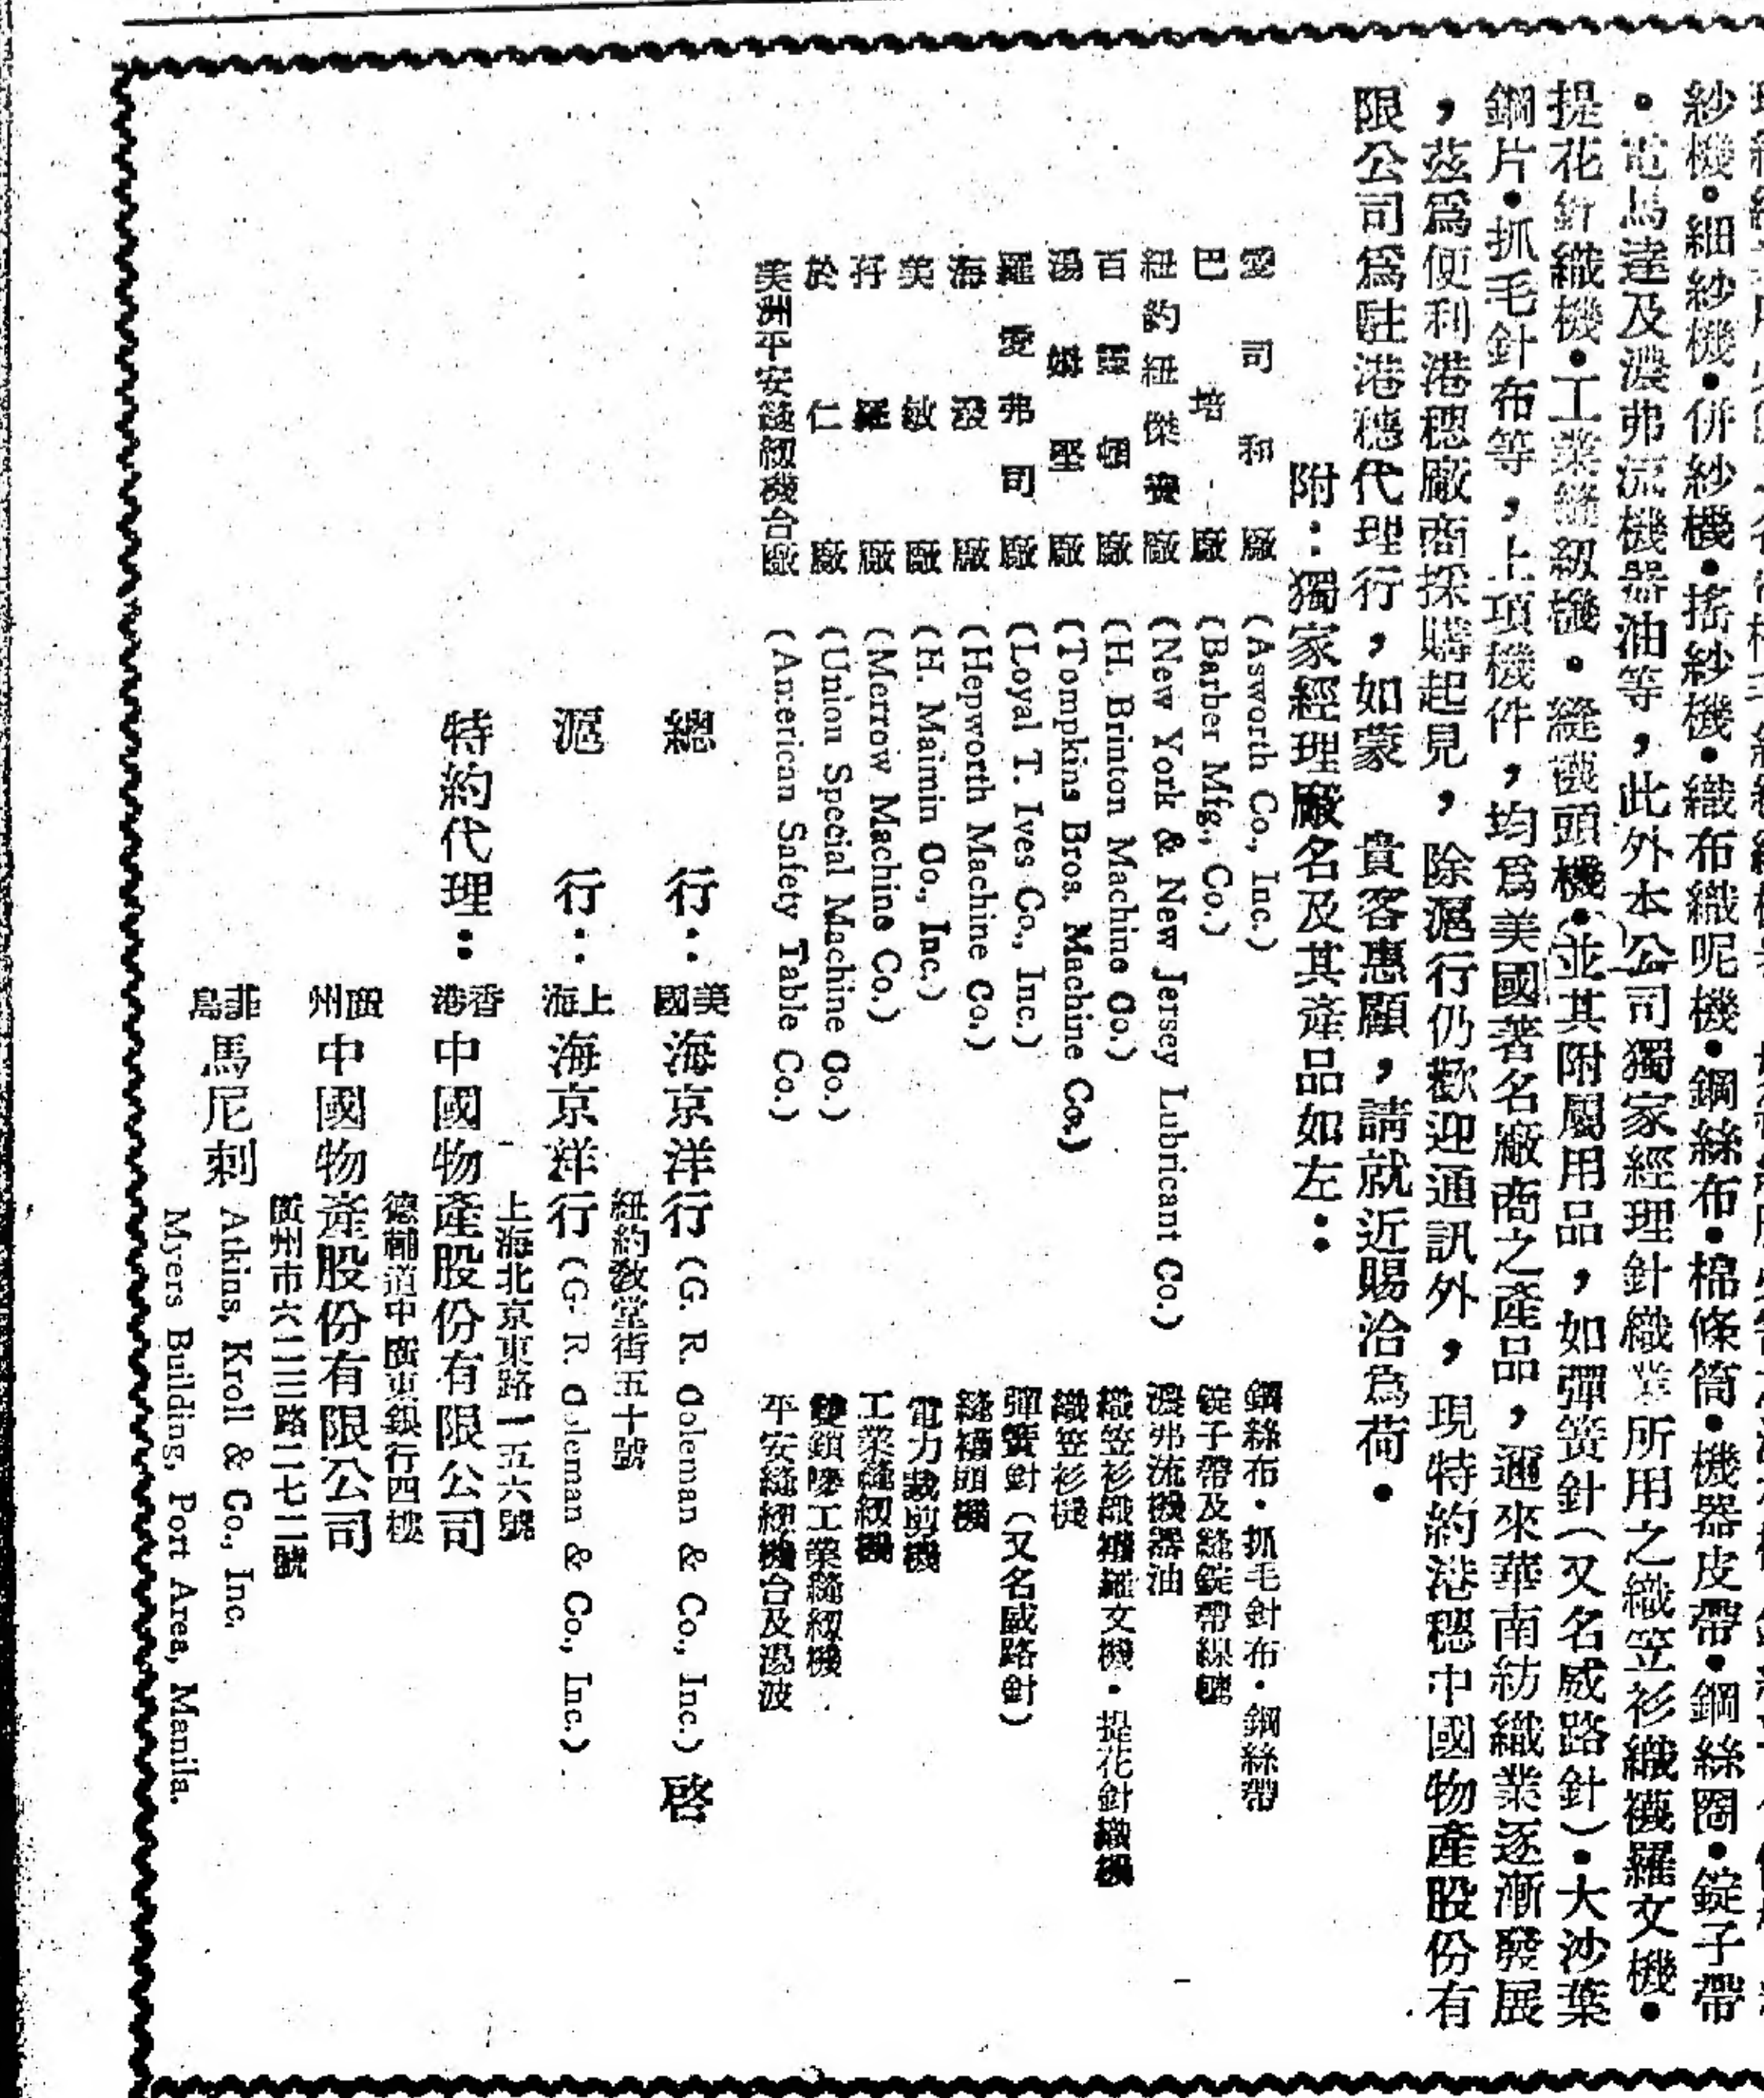 紗機。細紗機・併紗機・搖紗機・織布織呢機・鋼絲布・棉條筒・機器皮帶・鋼絲圈・錠子帶
。電馬達及濃弗流機器油等,此外本公司獨家經理針織業所用之織笠衫織襪羅文機・
提花針織機・工業縫紉機・縫襪頭機・並其附屬用品,如彈簧針(又名威路針)・大沙葉
鋼片・抓毛針布等,上項機件,均爲美國著名廠商之產品,邇來華南紡織業逐漸發展
,茲爲便利港穗廠商採購起見,除滬行仍歡迎通訊外,現特約港穗中國物產股份有
限公司爲駐港穗代理行,如蒙 貴客惠顧,請就近賜洽爲荷・
附:獨家經理廠名及其產品如左:
愛司和廠 (Asworth Co., Inc.) 鋼絲布・抓毛針布・鋼絲帶
巴培廠 (Barber Mfg., Co.) 錠子帶及縫錠帶線轆
紐約紐傑廠 (New York & New Jersey Lubricant Co.) 濃弗流機器油
百靈頓廠 (H. Brinton Machine Co.) 織笠衫織襪羅文機・提花針織機
湯姆堅廠 (Tompkins Bros. Machine Co.) 織笠衫機
羅愛弗司廠 (Loyal T. Ives Co., Inc.) 彈簧針(又名威路針)
海潑廠 (Hepworth Machine Co.) 縫襪頭機
美敏廠 (H. Maimin Co., Inc.) 電力裁剪機
孖羅廠 (Merrow Machine Co.) 工業縫紉機
於仁廠 (Union Special Machine Co.) 雙鎖喙工業縫紉機
美洲平安縫紉機台廠 (American Safety Table Co.) 平安縫紉機台及湯波
總行:美國海京洋行 (G. R. Coleman & Co., Inc.) 啓
紐約教堂街五十號
滬行:上海海京洋行 (G. R. Coleman & Co., Inc.)
上海北京東路一五六號
特約代理:香港中國物產股份有限公司
德輔道中廣東銀行四樓
廣州中國物產股份有限公司
廣州市六二三路二七二號
菲島馬尼剌 Atkins, Kroll & Co., Inc.
Myers Building, Port Area, Manila.